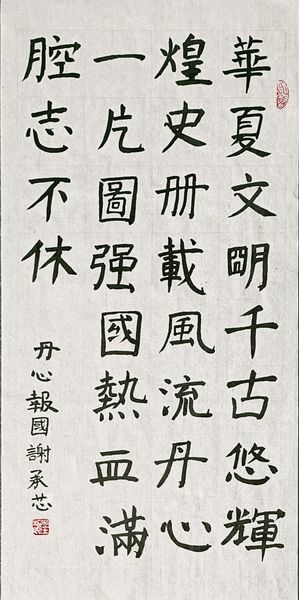 華夏文明千古悠輝
煌史册載風流丹心
一片圖强國熱血滿
腔志不休
丹心報國謝承芯